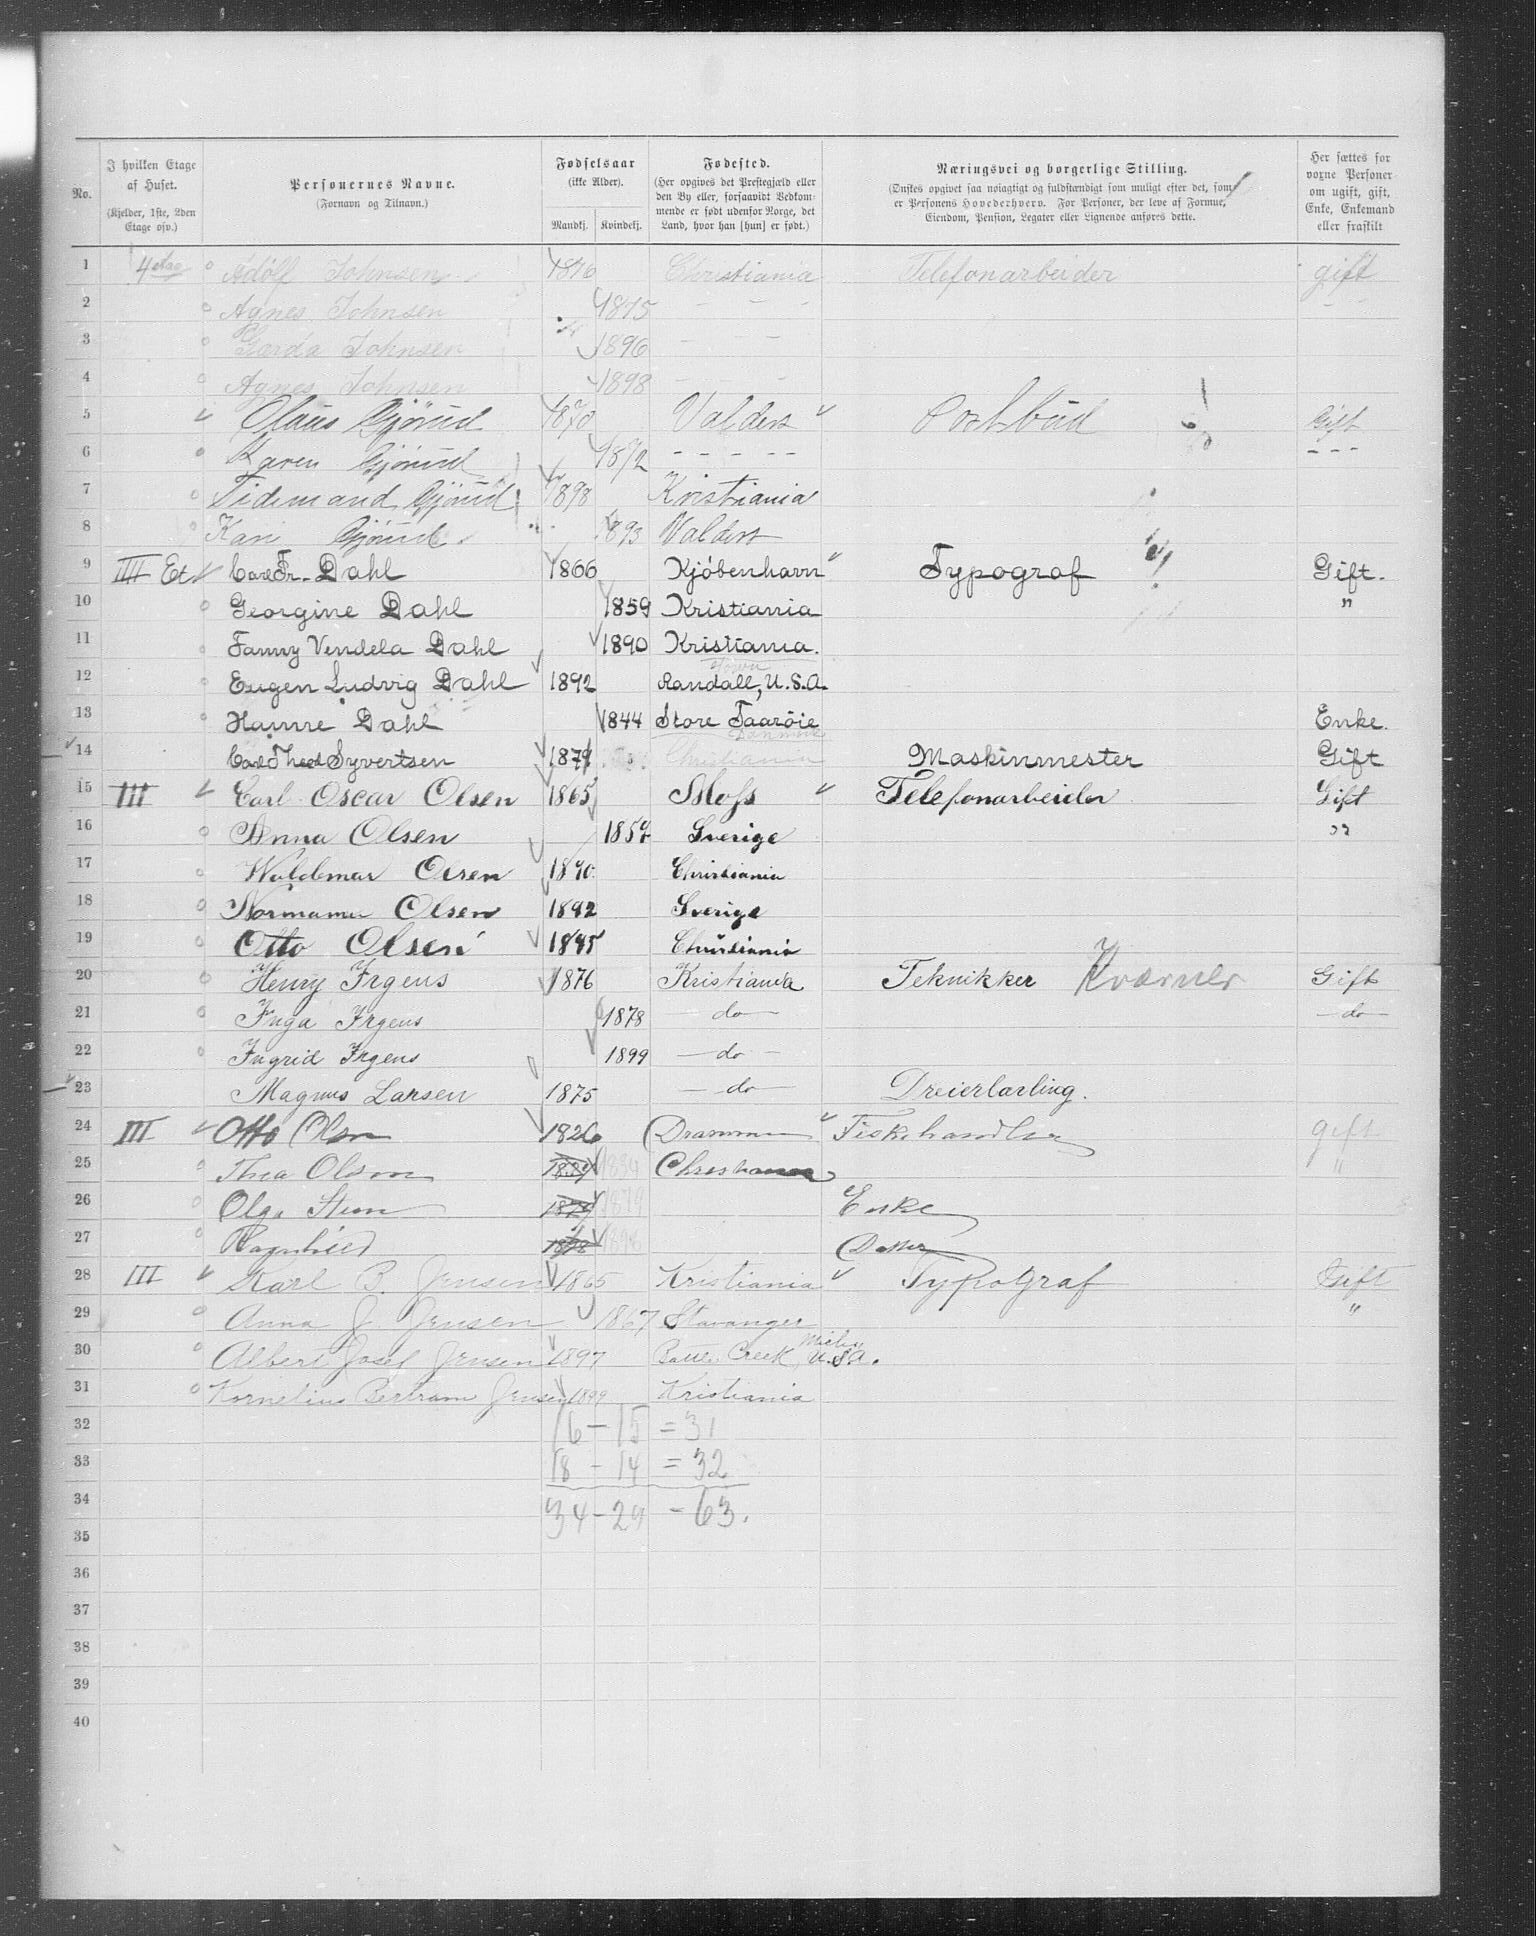 No.
I hvilken Etage af Huset. (Kjelder, 1ste, 2den Etage osv.)
Personernes Navne. (Fornavn og Tilnavn.)
Fødselsaar (ikke Alder). Mandkj. Kvindekj.
Fødested. (Her opgives det Prestegjæld eller den By eller, forsaavidt Vedkommende er født udenfor Norge, det Land, hvor han [hun] er født.)
Næringsvei og borgerlige Stilling. (Ønskes opgivet saa nøiagtigt og fuldstændigt som muligt efter det, som er Personens Hovederhverv. For Personer, der leve af Formue, Eiendom, Pension, Legater eller Lignende anføres dette.
Her sættes for voxne Personer om ugift, gift, Enke, Enkemand eller fraskilt
1 4 etag Adolf Johnsen 1876 Christiania Telefonarbeider gift
2 Agnes Johnsen 1875 - - - - -
3 Gærda Johnsen 1896 - - -
4 Agnes Johnsen 1898 - - -
5 Olaus Gjörud 1870 Valders Postbud Gift
6 Karen Gjörud 1872 - - - - - - - -
7 Tidemand Gjörud 1898 Kristiania
8 Kari Gjörud 1893 Valders
9 III Et Carl Fr. Dahl 1866 Kjöbenhavn Typograf Gift.
10 Georgine Dahl 1859 Kristiania "
11 Fanny Vendela Dahl 1890 Kristiania.
12 Eugen Ludvig Dahl 1892 Randall, Town U.S.A.
13 Hanne Dahl 1844 Store Taaröie Danmark Enke.
14 Carl Theod Syvertsen 1871 Christiania Maskinmester Gift
15 III Carl Oscar Olsen 1865 Moss Telefonarbeider Gift
16 Anna Olsen 1857 Sverige "
17 Waldemar Olsen 1890 Christiania
18 Normann Olsen 1892 Sverige
19 Otto Olsen 1895 Christiania
20 Henry Irgens 1876 Kristiania Teknikker Kværner Gift
21 Inga Irgens 1878 - do - - do -
22 Ingrid Irgens 1899 - do -
23 Magnus Larsen 1875 - do - Dreierlærling.
24 III Otto Olsen 1826 Drammen Fiskehandler gift
25 Thea Olsen 1834 Christiania "
26 Olga Steen 1879 Enke
27 Ragnhild 1898 Datter
28 III Karl B. Jensen 1865 Kristiania Typograf Gift
29 Anna J. Jensen 1867 Stavanger "
30 Albert Josef Jensen 1897 Battle Creek, Mich. U.S.A.
31 Kornelius Bertram Jensen 1899 Kristiania
32 16 - 15 = 31
33 18 - 14 = 32
34 34 - 29 - 63.
35
36
37
38
39
40